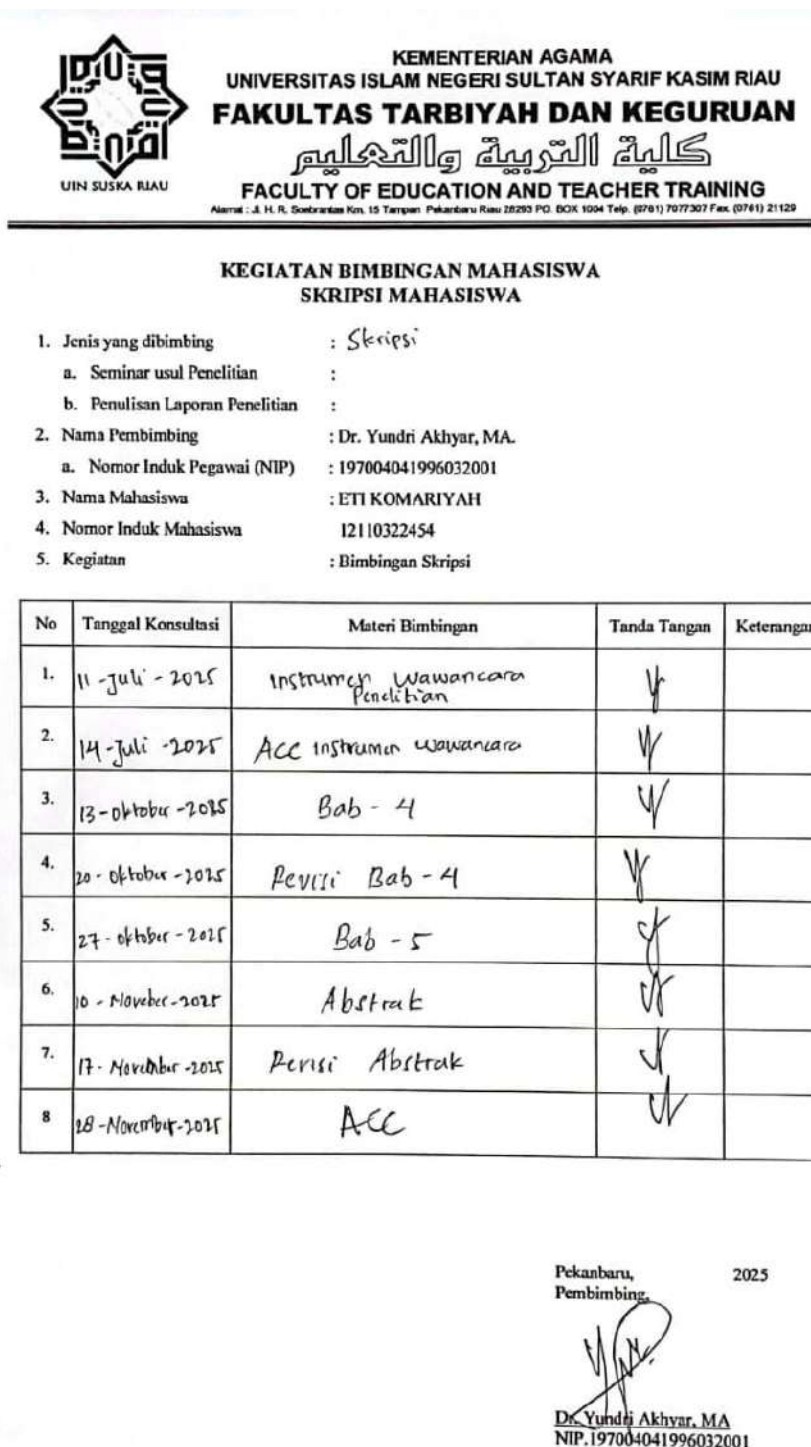 UIN SUSKA RIAU
KEMENTERIAN AGAMA
UNIVERSITAS ISLAM NEGERI SULTAN SYARIF KASIM RIAU
FAKULTAS TARBIYAH DAN KEGURUAN
كلية التربية والتعليم
FACULTY OF EDUCATION AND TEACHER TRAINING
Alamat : Jl. H. R. Soebrantas Km. 15 Tampan Pekanbaru Riau 28293 PO. BOX 1004 Telp. (0761) 7077307 Fax. (0761) 21129
KEGIATAN BIMBINGAN MAHASISWA
SKRIPSI MAHASISWA
1. Jenis yang dibimbing : Skripsi
a. Seminar usul Penelitian :
b. Penulisan Laporan Penelitian :
2. Nama Pembimbing : Dr. Yundri Akhyar, MA.
a. Nomor Induk Pegawai (NIP) : 197004041996032001
3. Nama Mahasiswa : ETI KOMARIYAH
4. Nomor Induk Mahasiswa 12110322454
5. Kegiatan : Bimbingan Skripsi
No Tanggal Konsultasi Materi Bimbingan Tanda Tangan Keterangan
1. 11 - Juli - 2025 Instrumen Wawancara
Penelitian
2. 14 - Juli - 2025 ACC Instrumen Wawancara
3. 13 - Oktober - 2025 Bab - 4
4. 20 - Oktober - 2025 Revisi Bab - 4
5. 27 - Oktober - 2025 Bab - 5
6. 10 - Noveber - 2025 Abstrak
7. 17 - November - 2025 Revisi Abstrak
8 28 - November - 2025 ACC
Pekanbaru, 2025
Pembimbing,
Dr. Yundri Akhyar, MA
NIP.197004041996032001